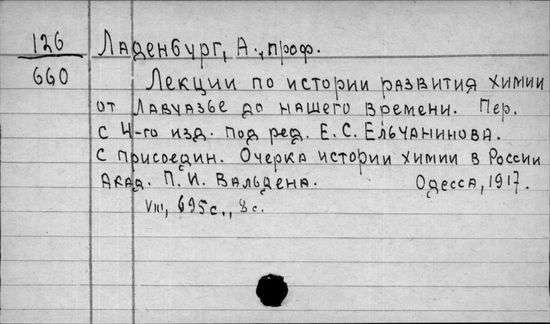 126 Ладенбург, А., проф.
660
Лекции по истории развития химии
от Лавуазье до нашего времени. Пер.
с 4-го изд. под ред. Е.С. Ельчанинова.
С присоедин. Очерка истории химии в России
акад. П.И. Вальдена. Одесса, 1917.
VIII, 695 с., 8 с.